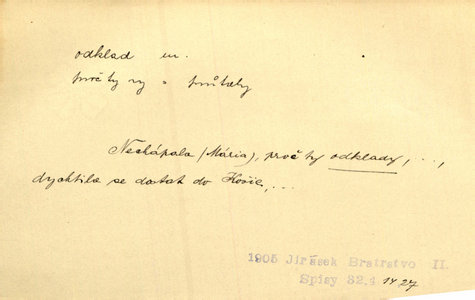 odklad m.
proč ty
Nechápala (Mária), proč ty odklady, ...,
dychtila se dostat do Košic, ...
1905 Jirásek Bratrstvo II.
Spisy 32.4 1427